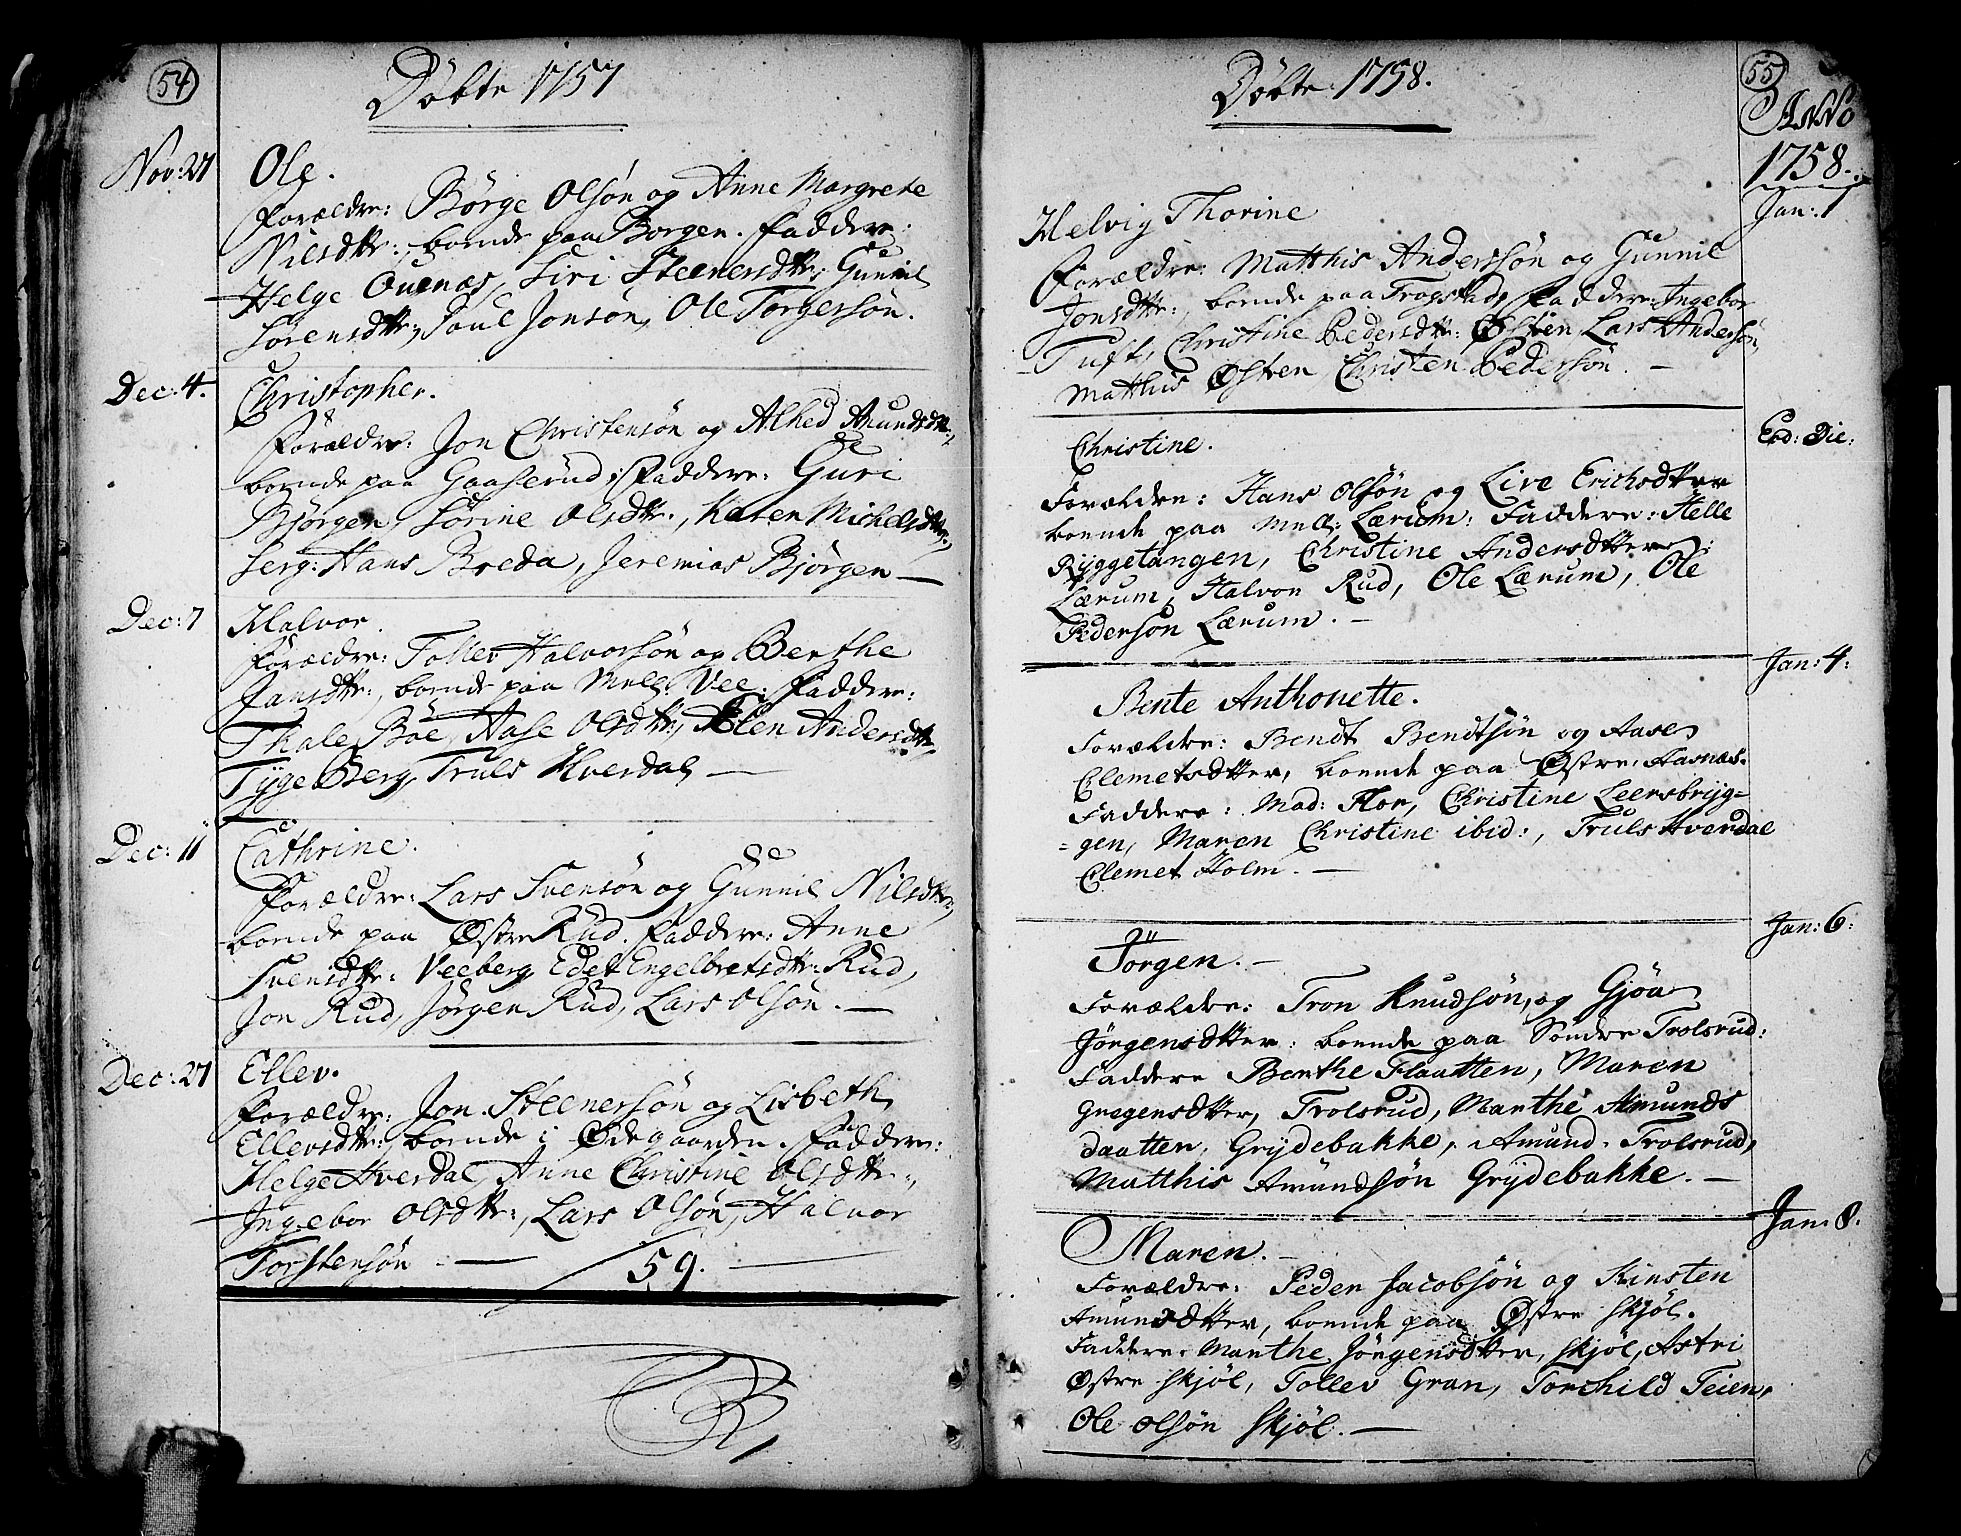 54
Döbte 1757
Nov: 27
Ole.
Forældre: Börge Olsön og Anne Margrete
Nilsdtr:, boende paa Borgen. Faddere:
Helge Ouenas, Siri Steenersdtr, Gunnil
Sörensdtr:, Poul Jonsön, Ole Torgersön.
Dec: 4.
Christopher.
Forældre: Jon Christensön og Alhed Amundsdtr:,
boende paa Gaaserud; Faddere: Guri
Björgen, Sörine Olsdtr:, Karen Michelsdtr:,
Serg: Hans Breda, Jeremias Björgen —
Dec: 7
Halvor.
Forældre: Tollev Halvorsön og Berthe
Jansdtr:, boende paa Mell: Vee: Faddere:
Thale Böe, Aase Olsdtr:, Elen Andersdtr:,
Tyge Berg, Truls Hverdal —
Dec: 11
Cathrine.
Forældre: Lars Svensön og Gunnil Nilsdtr:,
boende paa Østre Rud. Faddere: Anne
Svensdtr: Veeberg, Edet Engelbretsdtr: Rud,
Jon Rud, Jörgen Rud, Lars Olsön. —
Dec: 27
Ellev.
Forældre: Jon Steenersön og Lisbeth
Ellevsdtr: boende i Ødegaarden. Faddere:
Helge Hverdal, Anne Christine Olsdtr:,
Ingebor Olsdtr:, Lars Olsön, Halvor
Torstensön — 59. —
55
Döbte 1758.
Anno
1758.
Jan: 1
Helvig Thorine
Forældre: Matthis Andersön og Gunnil
Jonsdtr:, boende paa Trogstad, Faddere: Ingebor
Tuft, Christine Pedersdtr: Østen, Lars Andersön,
Matthis Østen, Christen Pedersön. —
Eod: Die:
Christine.
Forældre: Hans Olsön og Live Erichsdtter
boende paa Mell: Lærum: Faddere: Helle
Ryggetangen, Christine Andersdtter:
Lærum, Halvor Rud, Ole Lærum, Ole
Pedersön Lærum. —
Jan: 4:
Bente Anthonette.
Forældre: Bendt Bendtsön og Aase
Clemetsdtter, boende paa Østre: Aasnæs.
Faddere: Mad: Flor, Christine Leersbryg-
-gen, Maren Christine ibid:, Truls Hverdal
Clemet Holm. —
Jan: 6:
Jörgen. —
Forældre: Tron Knudsön, og Gjöa
Jörgensdtter: boende paa Söndre Trolsrud:
Faddere Berthe Flaatten, Maren
Gregersdtter, Trolsrud, Marthe Amunds
daatter, Grydebakke, Amund Trolsrud,
Matthis Amundsön Grydebakke. —
Jan: 8.
Maren. —
Forældre: Peder Jacobsön og Kirsten
Amundsdtter, boende paa Østre Skjöl.
Faddere: Marthe Jörgensdtter, Skjöl, Astri
Østre Skjöl, Tollev Gran, Torchild Teien,
Ole Olsön Skjöl. —